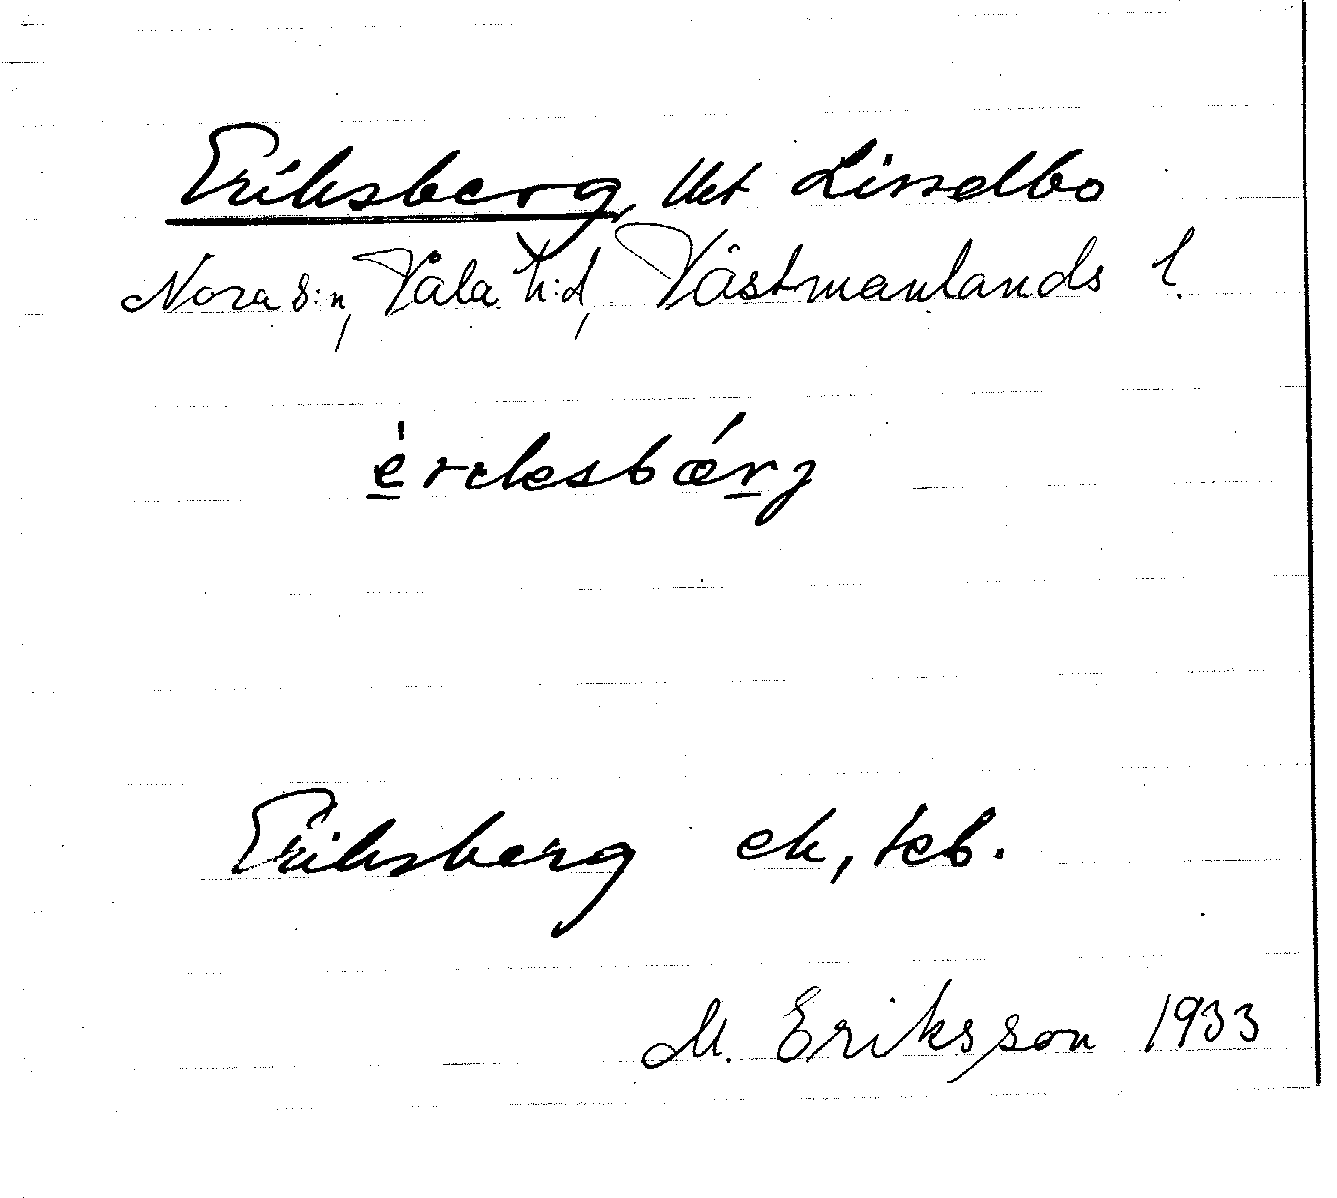 Eriksberg, Uet Lisselbo
Nora s:n, Våla h:d, Västmanlands l.
Eriksberg ek, teb.
M. Eriksson 1933